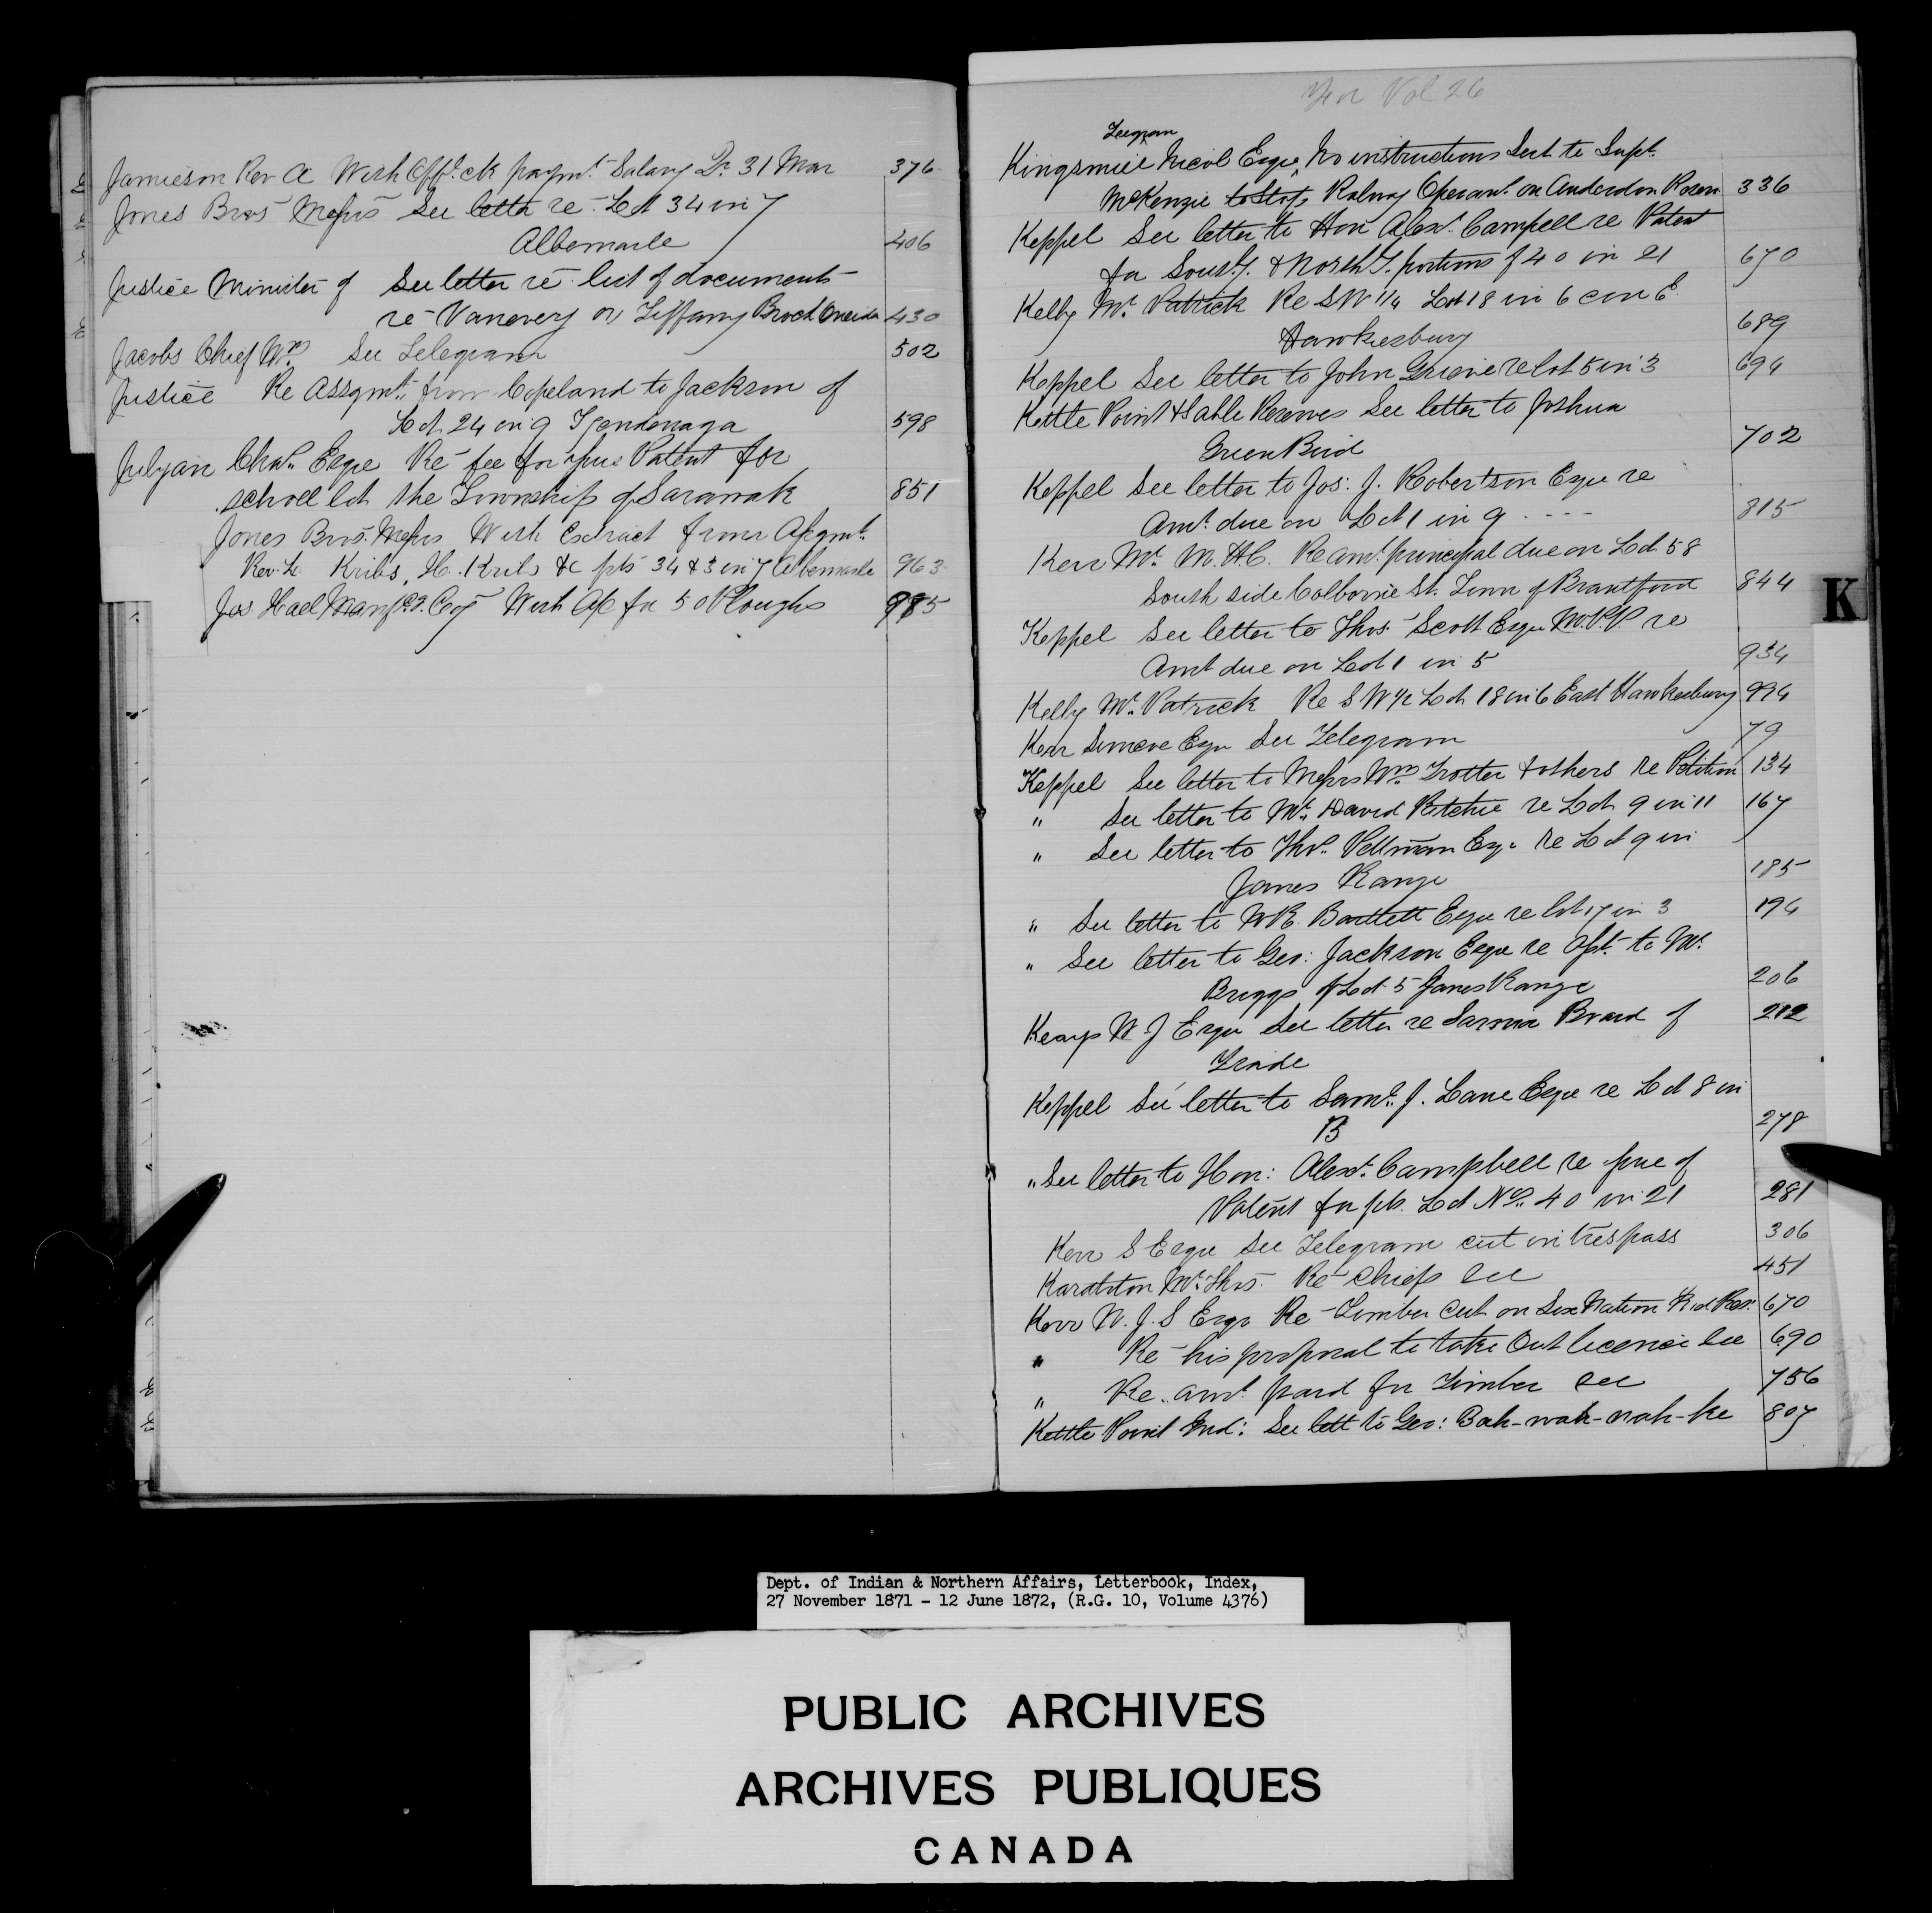 Jamieson Rev A With Off.l ck paym.t Salary Qr. 31 Mar 376
Jones Bros Messrs See letter re Lot 34 in 7
Albemarle 406
Justice Minister of See letter re list of documents
re Vanevery or Tiffany Block Oneida 430
Jacobs Chief Wm. See Telegram 502
Justice Re Assgmt. from Copeland to Jackson of
Lot 24 in 9 Tyendenaga 598
Julyan Chas. Esqre Re fee for issue Patent for
school lot the Township of Sarawak 851
Jones Bros. Messrs With Extract from Assgmt.
Rev. L. Kribs, H. Kribs &c pts 34 & 3 in 7 Albemarle 963
Jos Hall Manfg. Coy With A/c for 50 Ploughs 985
For Vol 26
Telegram
Kingsmill Nicol Esqre, No instructions Sent to Supt.
McKenzie to Stop Ralway Operant. on Anderdon Reserve 336
Keppel See letter to Hon Alexr. Campell re Patent
for South. & North portions of 40 in 21 670
Kelly Mr. Patrick Re SW 1/4 Lot 18 in 6 con E.
Hawkesbury 689
Keppel See letter to John Grieve re lot 5 in 3 694
Kettle Point & Sable Reserves See letter to Joshua
Green Bird 702
Keppel See letter to Jos: J. Robertson Esqre re
Amt. due on Lot 1 in 9 - - - - 815
Kerr Mr. M. H.C. Re amt. principal due on Lot 58
South side Colborne St. Town of Brantford 844
Keppel See letter to Thos. Scott Esqre M.P.P. re
Amt due on Lot 1 in 5 934
Kelly Mr. Patrick Re S W 1/2 Lot 18 in 6 East Hawkesbury 994
Kerr Simcoe Esqr See Telegram 79
Keppel See letter to Messrs Wm. Trotter & others re Petition 134
" See letter to Mr. David Ritchie re Lot 9 in 11 167
" See letter to Thos. Pellman Esqr re Lot 9 in
Jones Range 185
" See letter to W.R. Bartlett Esqre re lot 17 in 3 194
" See letter to Geo: Jackson Esqre re Assgt. to Mr.
Briggs of Lot 5 Jones Range 206
Keays W J Esqre See letter re Sarnia Board of 212
Trade
Keppel See letter to Saml. J. Lane Esqre re Lot 8 in
B 278
" See letter to Hon: Alexr. Campbell re issue of
Patent for pts. Lot No. 40 in 21 281
Kerr S Esqre See Telegram cut in trespass 306
Karahton Mr. Thos. Re Chiefs See 451
Kerr W. J. S Esqr Re Timber cut on Six Nation Ind Res: 670
" Re his proposal to take Out licence See 690
" Re. amt. paid for Timber See 756
Kettle Point Ind: See lett to Geo: Bah-wah-nah-ke 807
K
Dept. of Indian & Northern Affairs, Letterbook, Index,
27 November 1871 - 12 June 1872, (R.G. 10, Volume 4376)
PUBLIC ARCHIVES
ARCHIVES PUBLIQUES
CANADA